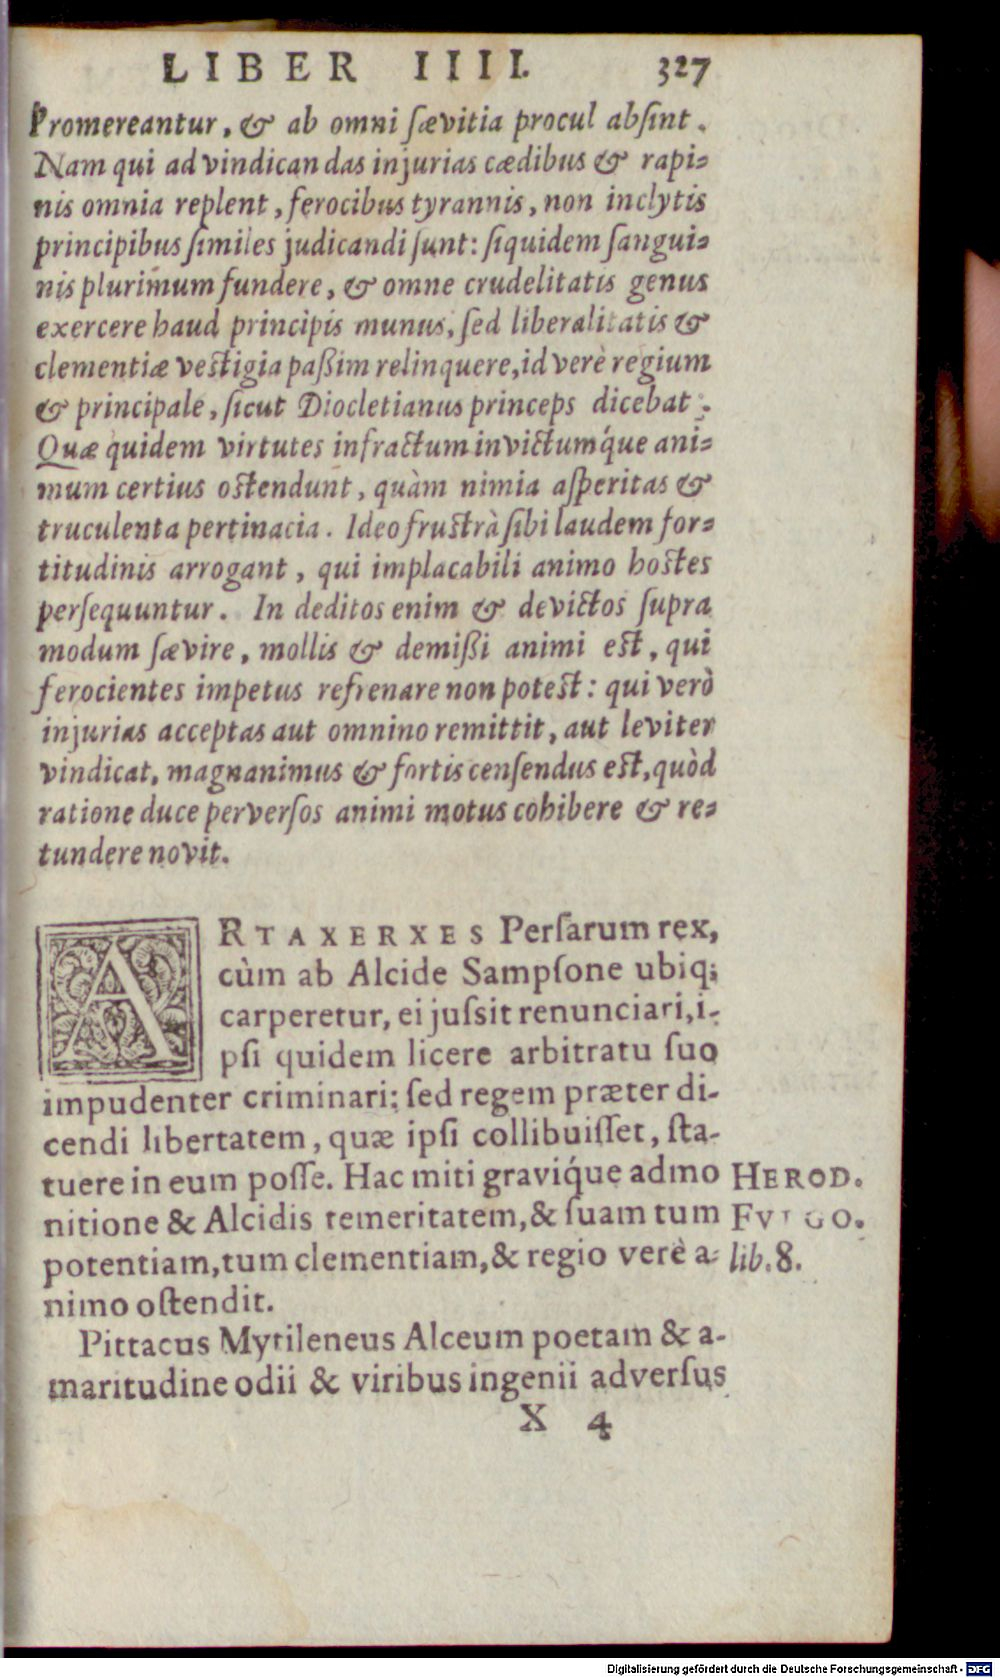 LIBER IIII. 327
Promereantur, & ab omni sævitia procul absint.
Nam qui ad vindicandas injurias cædibus & rapi-
nis omnia replent, ferocibus tyrannis, non inclytis
principibus similes judicandi sunt: siquidem sangui-
nis plurimum fundere, & omne crudelitatis genus
exercere haud principis munus, sed liberalitatis &
clementiæ vestigia paßim relinquere, id verè regium
& principale, sicut Diocletianus princeps dicebat.
Quæ quidem virtutes infractum invictumq́ue ani-
mum certius ostendunt, quàm nimia asperitas &
truculenta pertinacia. Ideo frustrà sibi laudem for-
titudinis arrogant, qui implacabili animo hostes
persequuntur. In deditos enim & devictos supra
modum sævire, mollis & demißi animi est, qui
ferocientes impetus refrenare non potest: qui verò
injurias acceptas aut omnino remittit, aut leviter
vindicat, magnanimus & fortis censendus est, quòd
ratione duce perversos animi motus cohibere & re-
tundere novit.
ARTAXERXES Persarum rex,
cùm ab Alcide Sampsone ubiq;
carperetur, ei jussit renunciari, i-
psi quidem licere arbitratu suo
impudenter criminari; sed regem præter di-
cendi libertatem, quæ ipsi collibuisset, sta-
tuere in eum posse. Hac miti graviq́ue admo
nitione & Alcidis temeritatem, & suam tum
potentiam, tum clementiam, & regio verè a-
nimo ostendit.
HEROD.
FVLGO.
lib. 8.
Pittacus Mytileneus Alceum poetam & a-
maritudine odii & viribus ingenii adversus
X 4
Digitalisierung gefördert durch die Deutsche Forschungsgemeinschaft - DFG